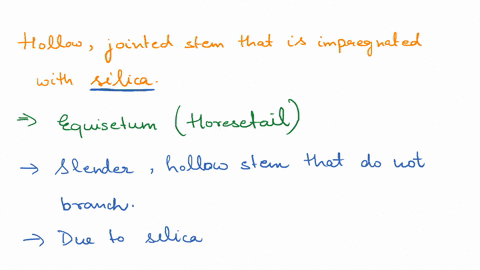 Hollow, jointed stem that is impregnated
with silica.
⇒ Equisetum (Horesetail)
→ Slender, hollow stem that do not
branch.
→ Due to silica